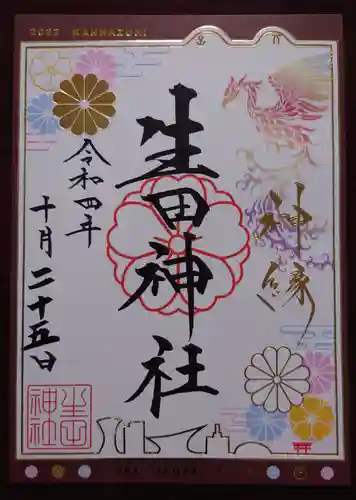 2022 KANNAZUKI
神縁
生田神社
令和四年
十月二十五日
生田神社